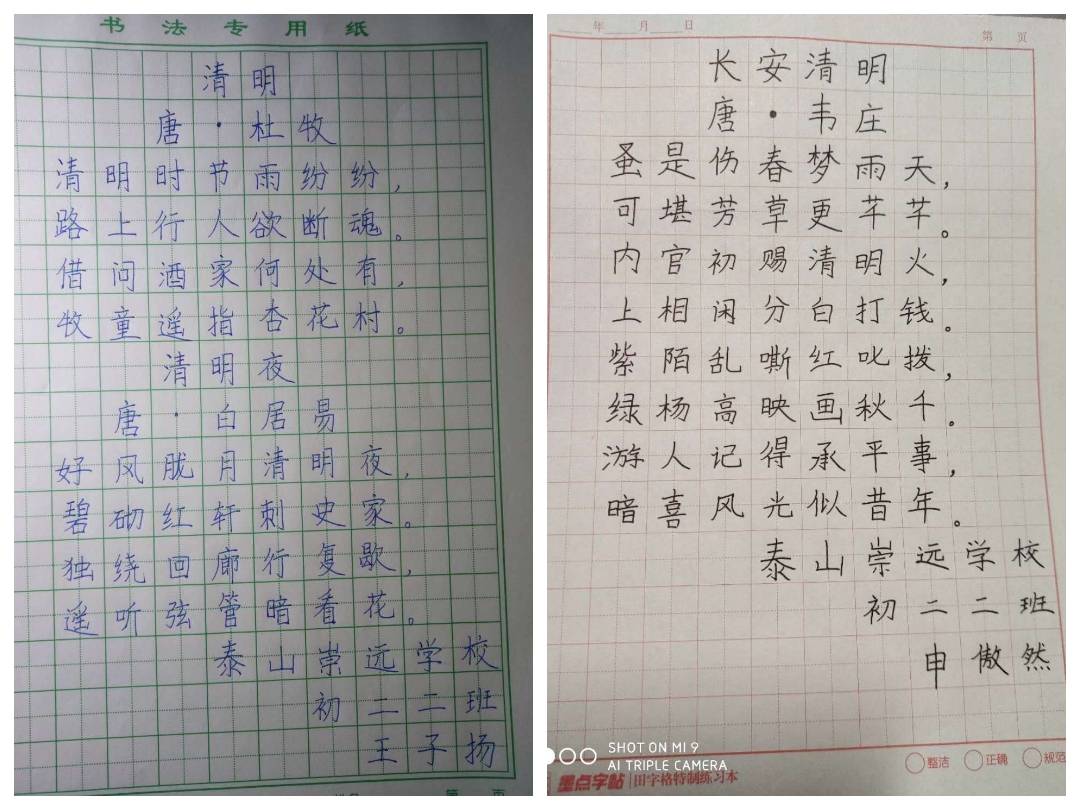 书法专用纸
清明
唐·杜牧
清明时节雨纷纷，
路上行人欲断魂。
借问酒家何处有，
牧童遥指杏花村。
清明夜
唐·白居易
好风胧月清明夜，
碧砌红轩刺史家。
独绕回廊行复歇，
遥听弦管暗看花。
泰山崇远学校
初二二班
王子扬
第 页
年 月 日
第 页
长安清明
唐·韦庄
蚤是伤春梦雨天，
可堪芳草更芊芊。
内官初赐清明火，
上相闲分白打钱。
紫陌乱嘶红叱拨，
绿杨高映画秋千。
游人记得承平事，
暗喜风光似昔年。
泰山崇远学校
初二二班
申傲然
SHOT ON MI 9
AI TRIPLE CAMERA
整洁 正确 规范
墨点字帖 田字格特制练习本